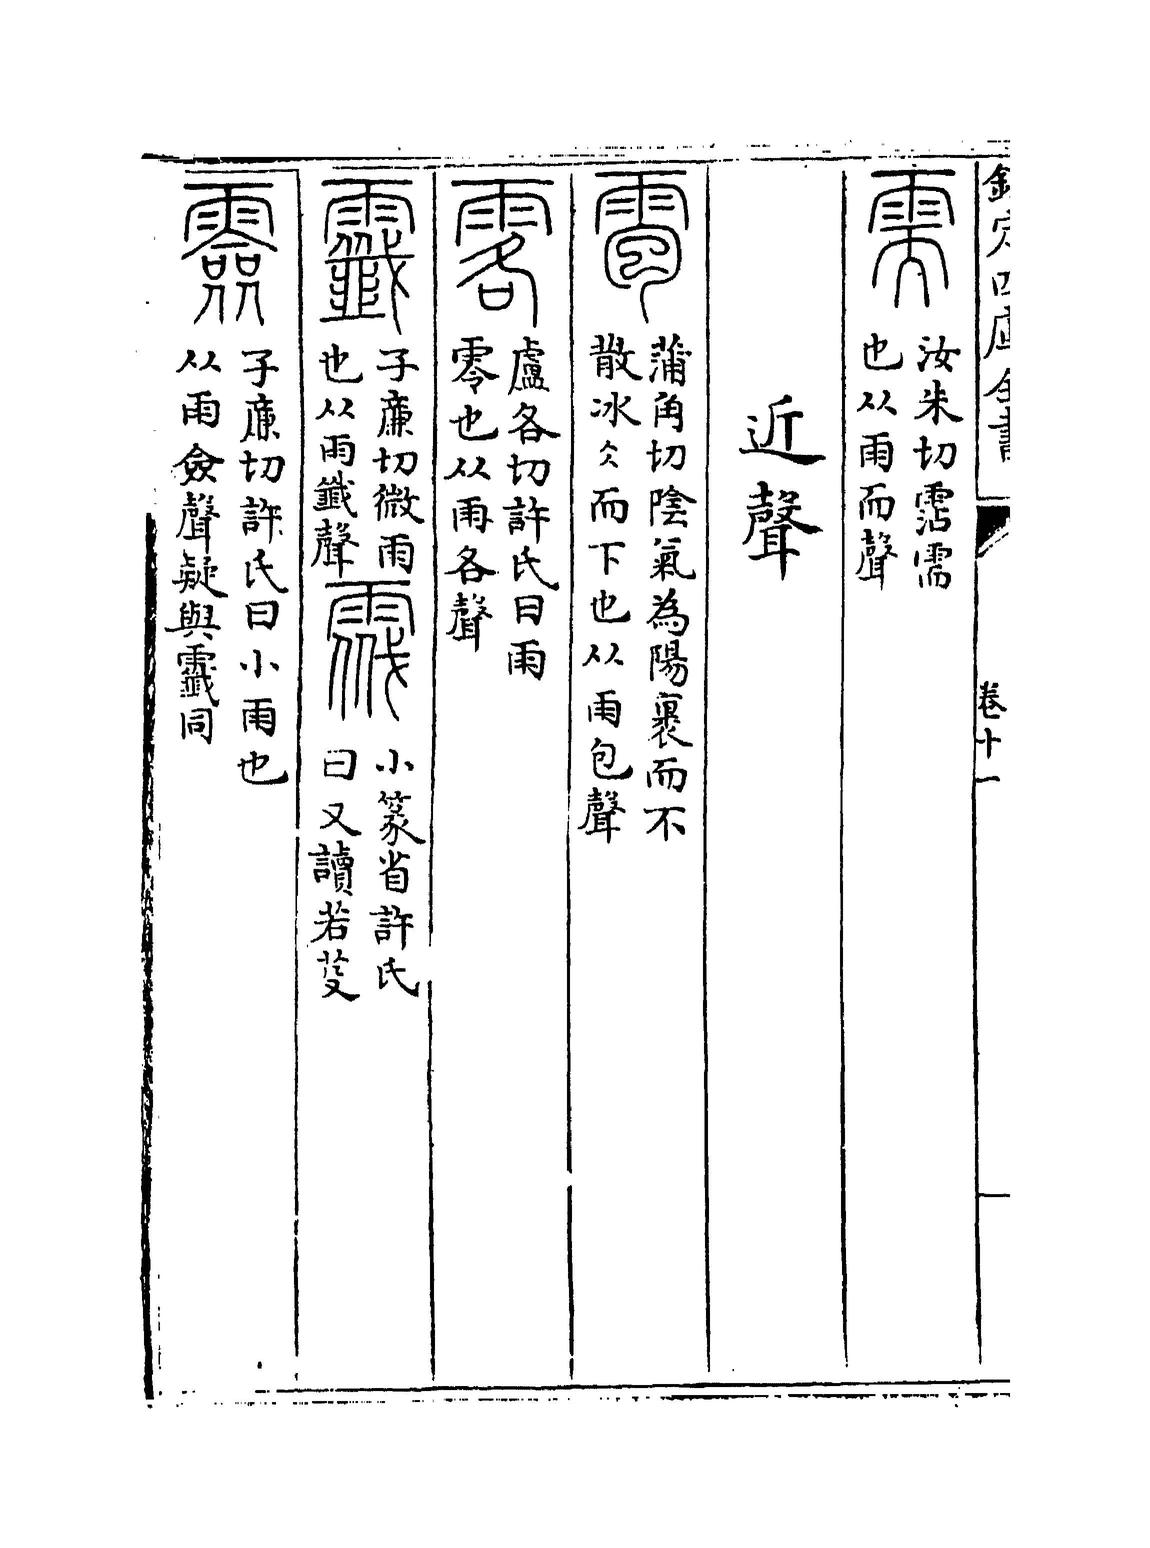 欽定四庫全書 卷十一
需 汝朱切霑濡
也从雨而聲
近聲
雹 蒲角切陰氣為陽裹而不
散冰仌而下也从雨包聲
盧各切許氏曰雨
零也从雨各聲
子廉切微雨
也从雨韱聲
䨘 小篆省許氏
曰又讀若芟
子廉切許氏曰小雨也
从雨僉聲疑與同